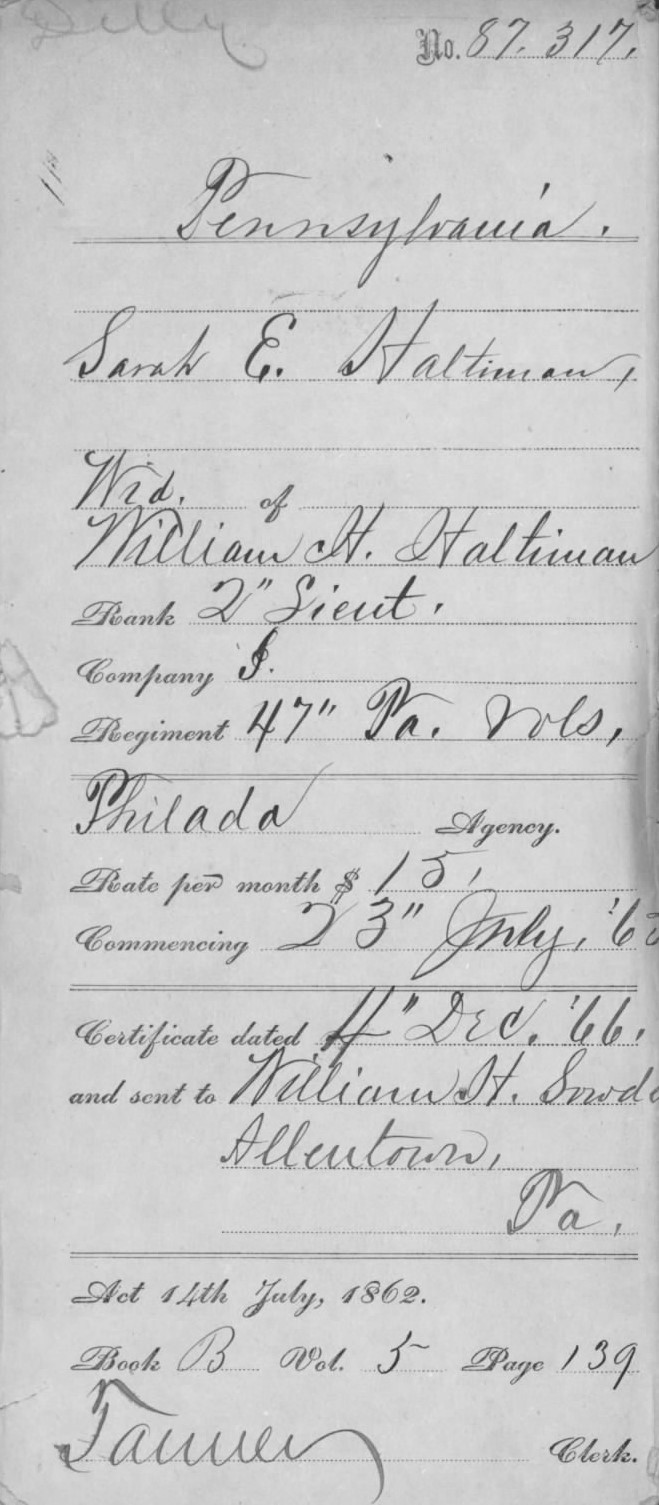 Dilly
No. 87.317.
Pennsylvania.
Sarah E. Haltiman,
Wid. of
William H. Haltiman
Rank 2" Lieut.
Company I.
Regiment 47" Pa. Vols,
Philada Agency.
Rate per month $ 15,
Commencing 23" July, '65
Certificate dated 4" Dec. '66.
and sent to William H. Sowd
Allentown,
Pa.
Act 14th July, 1862.
Book B Vol. 5 Page 139
Tanner Clerk.